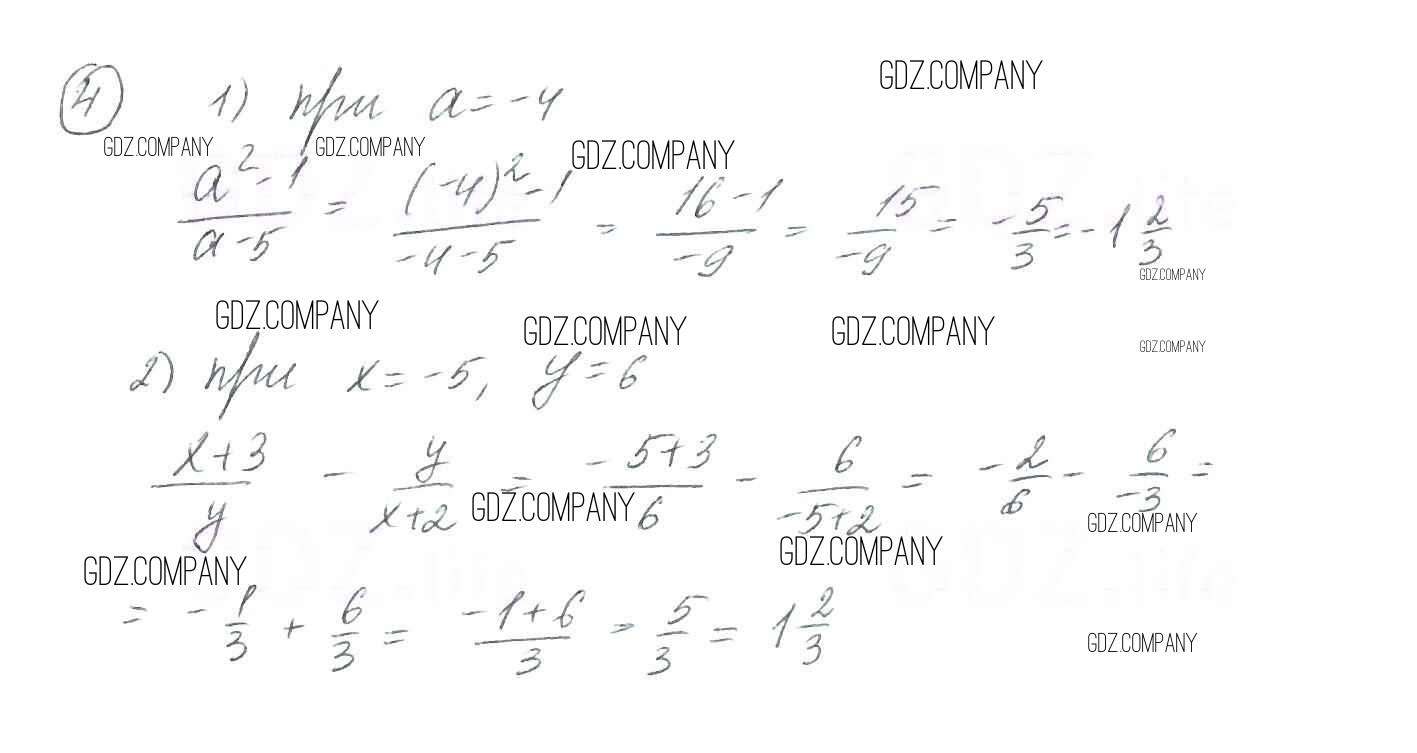 ④ 1) при a = -4
GDZ.COMPANY
GDZ.COMPANY GDZ.COMPANY GDZ.COMPANY
(a² - 1)/(a - 5) = ((-4)² - 1)/(-4 - 5) = (16 - 1)/(-9) = 15/(-9) = -5/3 = -1 2/3
GDZ.COMPANY
GDZ.COMPANY GDZ.COMPANY GDZ.COMPANY GDZ.COMPANY
2) при x = -5, y = 6
(x + 3)/y - y/(x + 2) = (-5 + 3)/6 - 6/(-5 + 2) = -2/6 - 6/(-3) =
GDZ.COMPANY GDZ.COMPANY
GDZ.COMPANY GDZ.COMPANY
= -1/3 + 6/3 = (-1 + 6)/3 = 5/3 = 1 2/3
GDZ.COMPANY